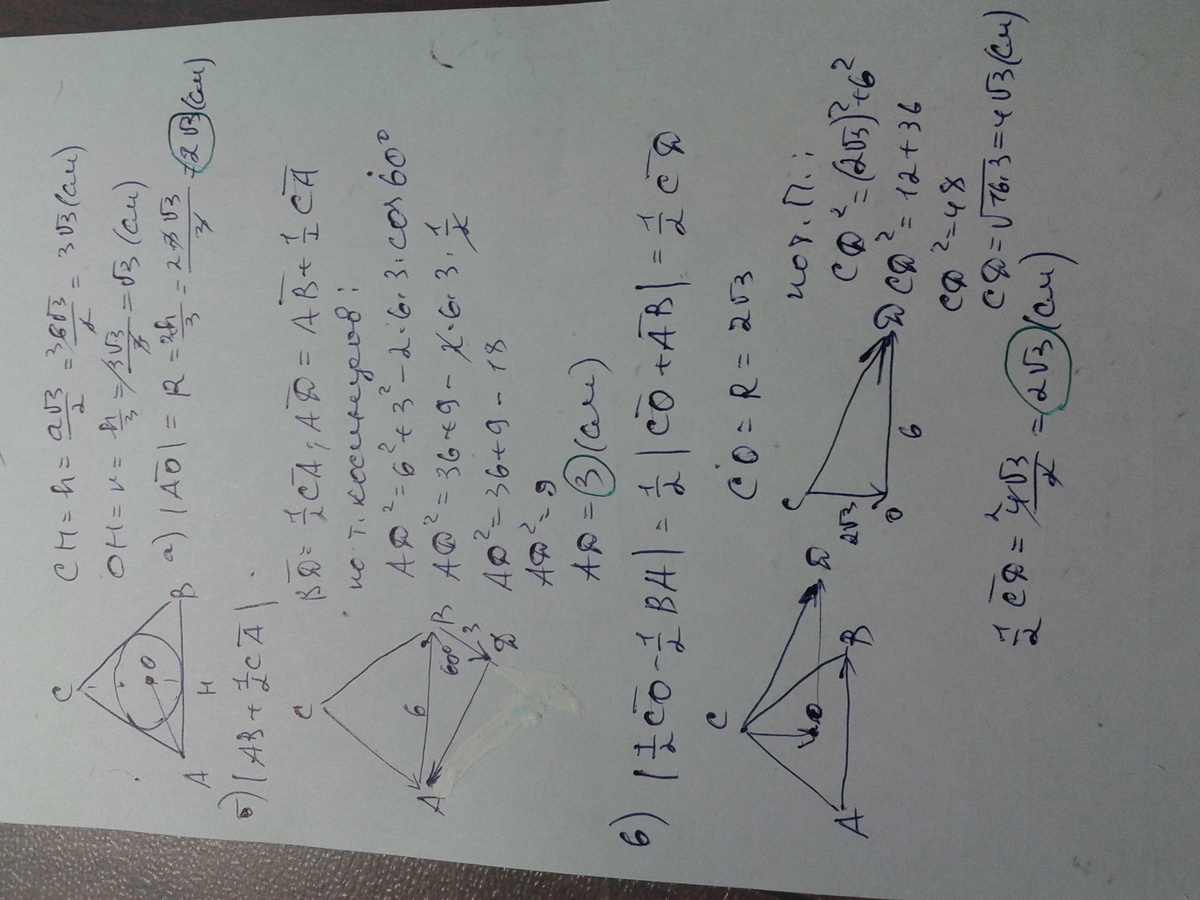 CH = h = a√3/2 = 6√3/2 = 3√3 (см)
OH = r = h/3 = 3√3/3 = √3 (см)
а) |AO| = R = 2h/3 = 2·3√3/3 = 2√3 (см)
C
O
A
H
B
б) |AB + 1/2 CA|
BD = 1/2 CA, AD = AB + 1/2 CA
по т. косинусов:
AD² = 6² + 3² - 2·6·3·cos 60°
AD² = 36 + 9 - 2·6·3·1/2
AD² = 36 + 9 - 18
AD² = 9
AD = 3 (см)
C
6
60°
B
3
A
D
в) |1/2 CO - 1/2 BA| = 1/2 |CO + AB| = 1/2 CD
CO = R = 2√3
C
D
O
A
B
C
2√3
O
6
D
по т. П.:
CD² = (2√3)² + 6²
CD² = 12 + 36
CD² = 48
CD = √16·3 = 4√3 (см)
1/2 CD = 4√3/2 = 2√3 (см)